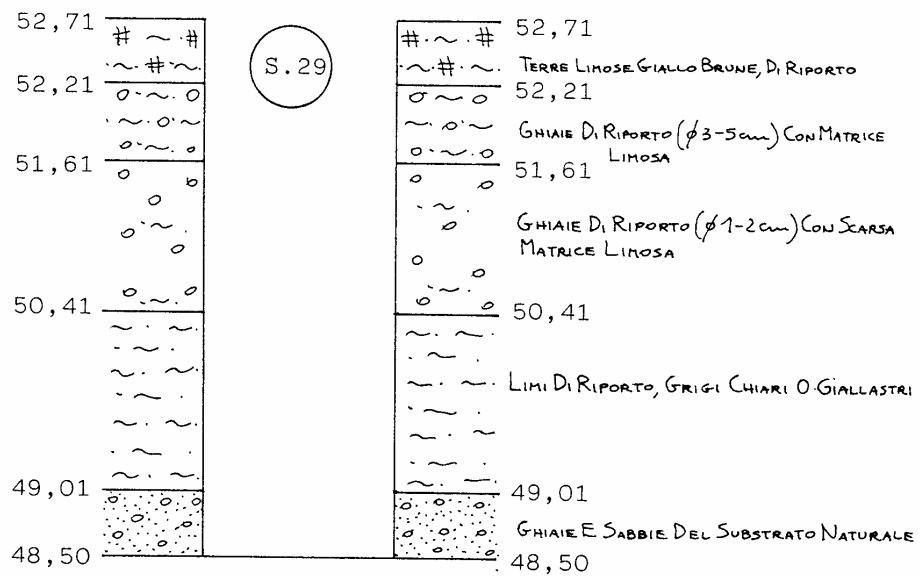 52,71
52,21
51,61
50,41
49,01
48,50
S.29
52,71
TERRE LIMOSE GIALLO BRUNE, DI RIPORTO
52,21
GHIAIE DI RIPORTO (ø3-5cm) CON MATRICE
LIMOSA
51,61
GHIAIE DI RIPORTO (ø1-2cm) CON SCARSA
MATRICE LIMOSA
50,41
LIMI DI RIPORTO, GRIGI CHIARI O GIALLASTRI
49,01
GHIAIE E SABBIE DEL SUBSTRATO NATURALE
48,50